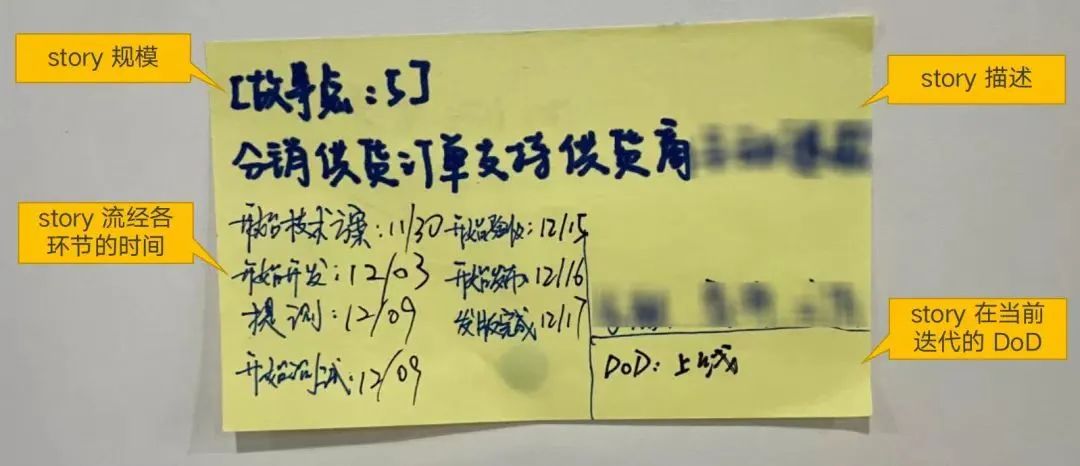 story 规模
story 描述
[故事点:5]
分销供货订单支持供货商
story 流经各
环节的时间
开始技术方案:11/30
开始验收:12/15
开始开发:12/03
开始发布:12/16
提测:12/09
发版完成 12/17
开始测试:12/09
story 在当前
迭代的 DoD
DoD: 上线